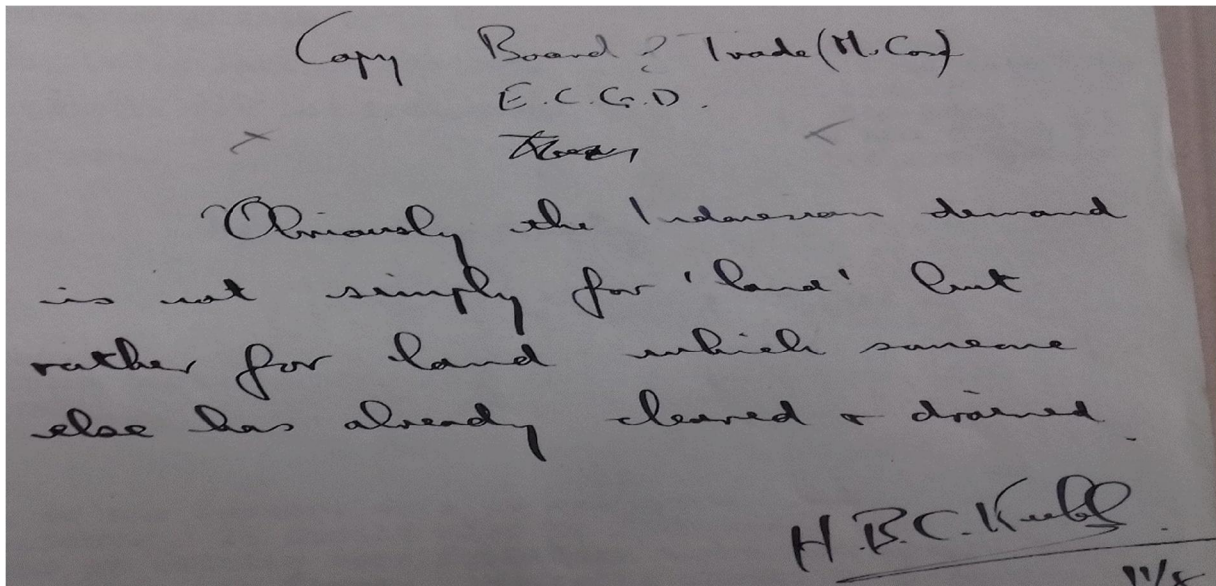 Copy Board of Trade (Mr. Conf)
E.C.G.D.
Obviously the Indonesian demand
is not simply for 'land' but
rather for land which someone
else has already cleared & drained.
H.B.C. Keeble
11/8